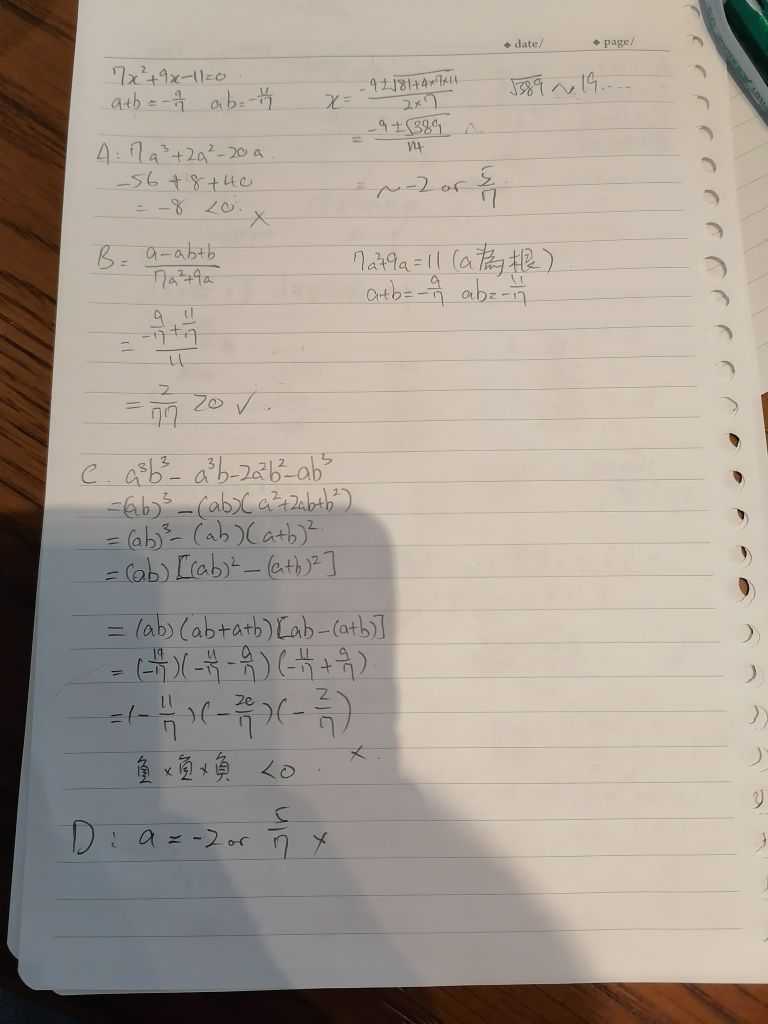 ◆ date/ ◆ page/
7x²+9x-11=0.
a+b = -9/7 ab = -11/7
x = (-9±√(81+4×7×11))/(2×7) √389 ~ 19....
= (-9±√389)/14
~ -2 or 5/7.
A: 7a³+2a²-20a
-56+8+40
= -8 <0. ×
B = (a-ab+b)/(7a²+9a)
7a²+9a=11 (a為根)
a+b=-9/7 ab=-11/7
= (-9/7+11/7)/11
= 2/77 ≥0 ✓.
C. a³b³-a³b-2a²b²-ab³
=(ab)³-(ab)(a²+2ab+b²)
=(ab)³-(ab)(a+b)²
=(ab)[(ab)²-(a+b)²]
=(ab)(ab+a+b)[ab-(a+b)]
=(-11/7)(-11/7-9/7)(-11/7+9/7)
=(-11/7)(-20/7)(-2/7)
負×負×負 <0. ×.
D: a = -2 or 5/7 ×